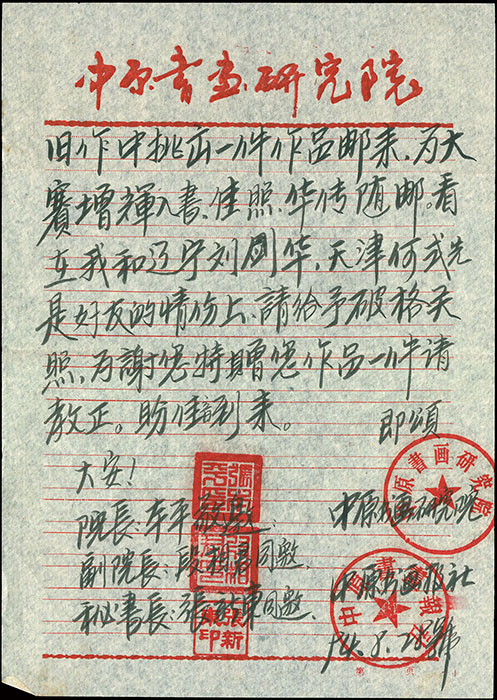 中原书画研究院
旧作中挑出一件作品邮来,为大
赛增輝入書、佳照、华传随邮。看
在我和辽宁刘国华,天津何武先
是好友的情份上、請给予破格关
照,为謝您特贈您作品一件请
教正。盼佳音到来。 即頌
大安!
院長:车平敬邀、 中原书画研究院
副院長:段 同邀、 中原书画报社
秘書長:張新東同邀、